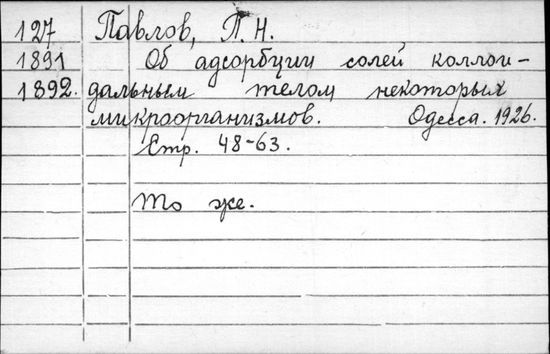 127 Павлов, П. Н.
1891 Об адсорбции солей коллои-
1892. дальным телом некоторых
микроорганизмов. Одесса. 1926.
Стр. 48-63.
То же.